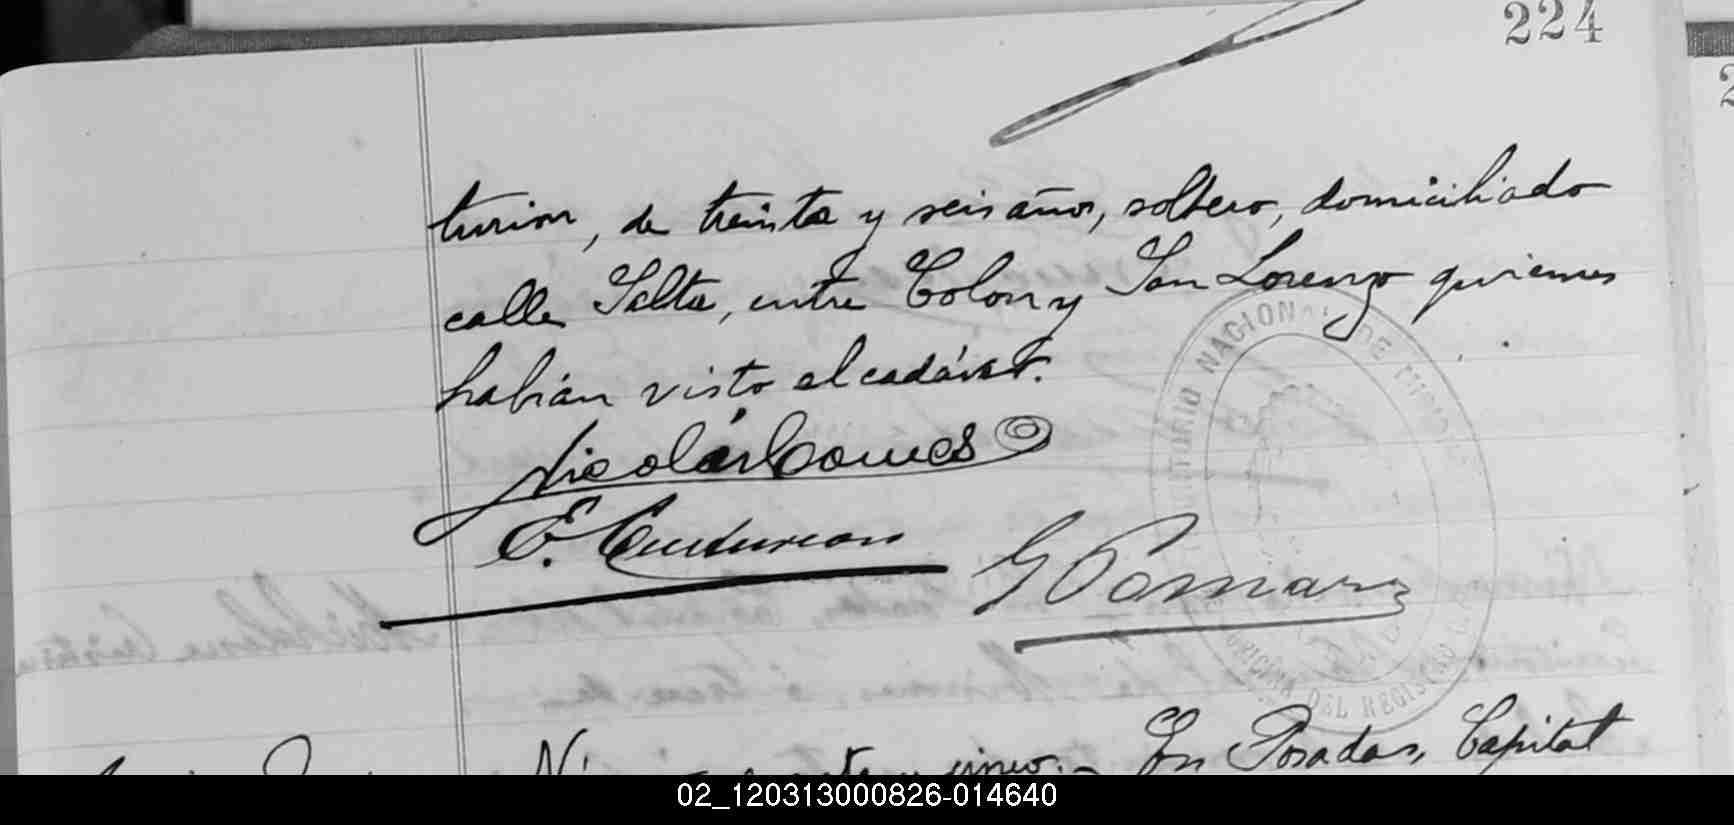 224
turion, de treinta y seis años, soltero, domiciliado
calle Salta, entre Colon y San Lorenzo quienes
habian visto el cadáver.
Nicolás Comes
E. Centurion
G Pomar
TERRITORIO NACIONAL DE MISIONES
OFICINA DEL REGISTRO
cinco.- En Posadas, Capital
02_120313000826-014640